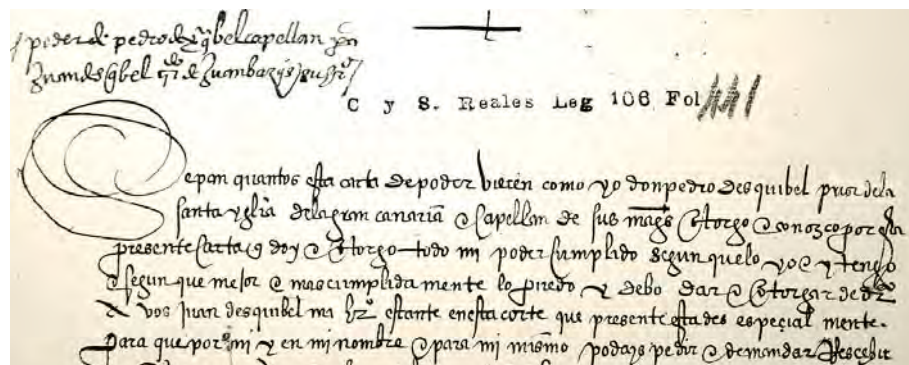 poder de pedro desq̃bel capellan
Juan desq̃bel
C y S. Reales Leg 106 Fol
Sepan quantos esta carta de poder bieren como yo don pedro desquibel prior dela
santa ygłia dela gran canaria e capellan de sus mag̃s otorgo e conozco por esta
presente carta q̃ doy e otorgo todo mi poder cumplido segun quelo yo e y tengo
e segun que mejor e mas cumplidamente lo puedo y debo dar e otorgar de dr̃o
a vos juan desquibel mi hr̃o estante enesta corte que presente estades especial mente.
para que por mi y en mi nombre e para mi mismo podays pedir e demandar Rescebir